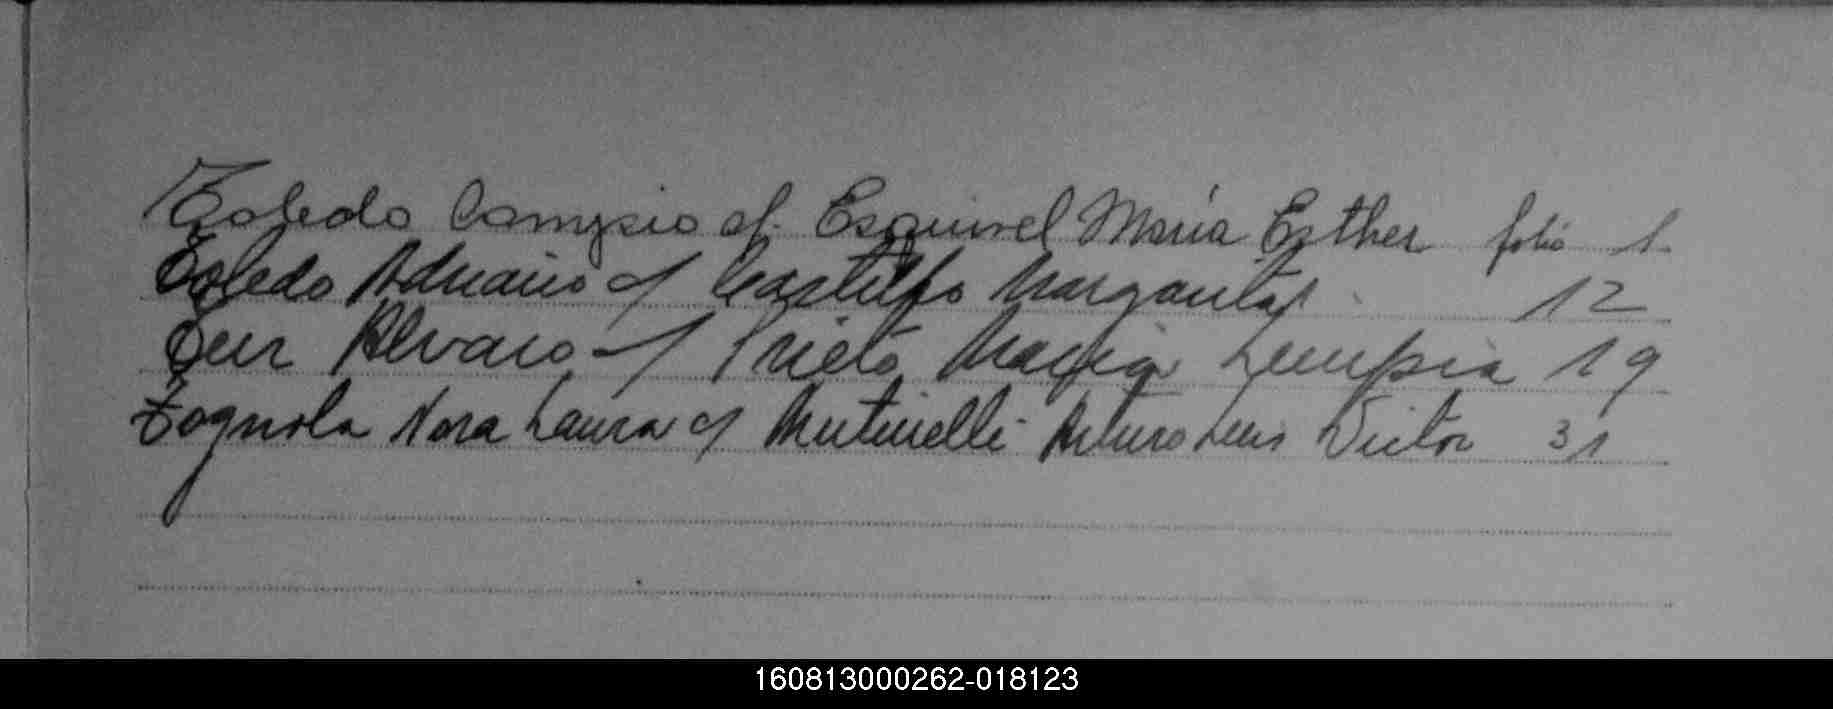 Toledo Campsio c/. Esquivel María Esther folio 1.
Toledo Adriano c/ Castillo Margarita 12
Alvaro c/ Prieto Maria 19
Tognola Nora Laura c/ Mutinelli Arturo Luis Victor 31
160813000262-018123